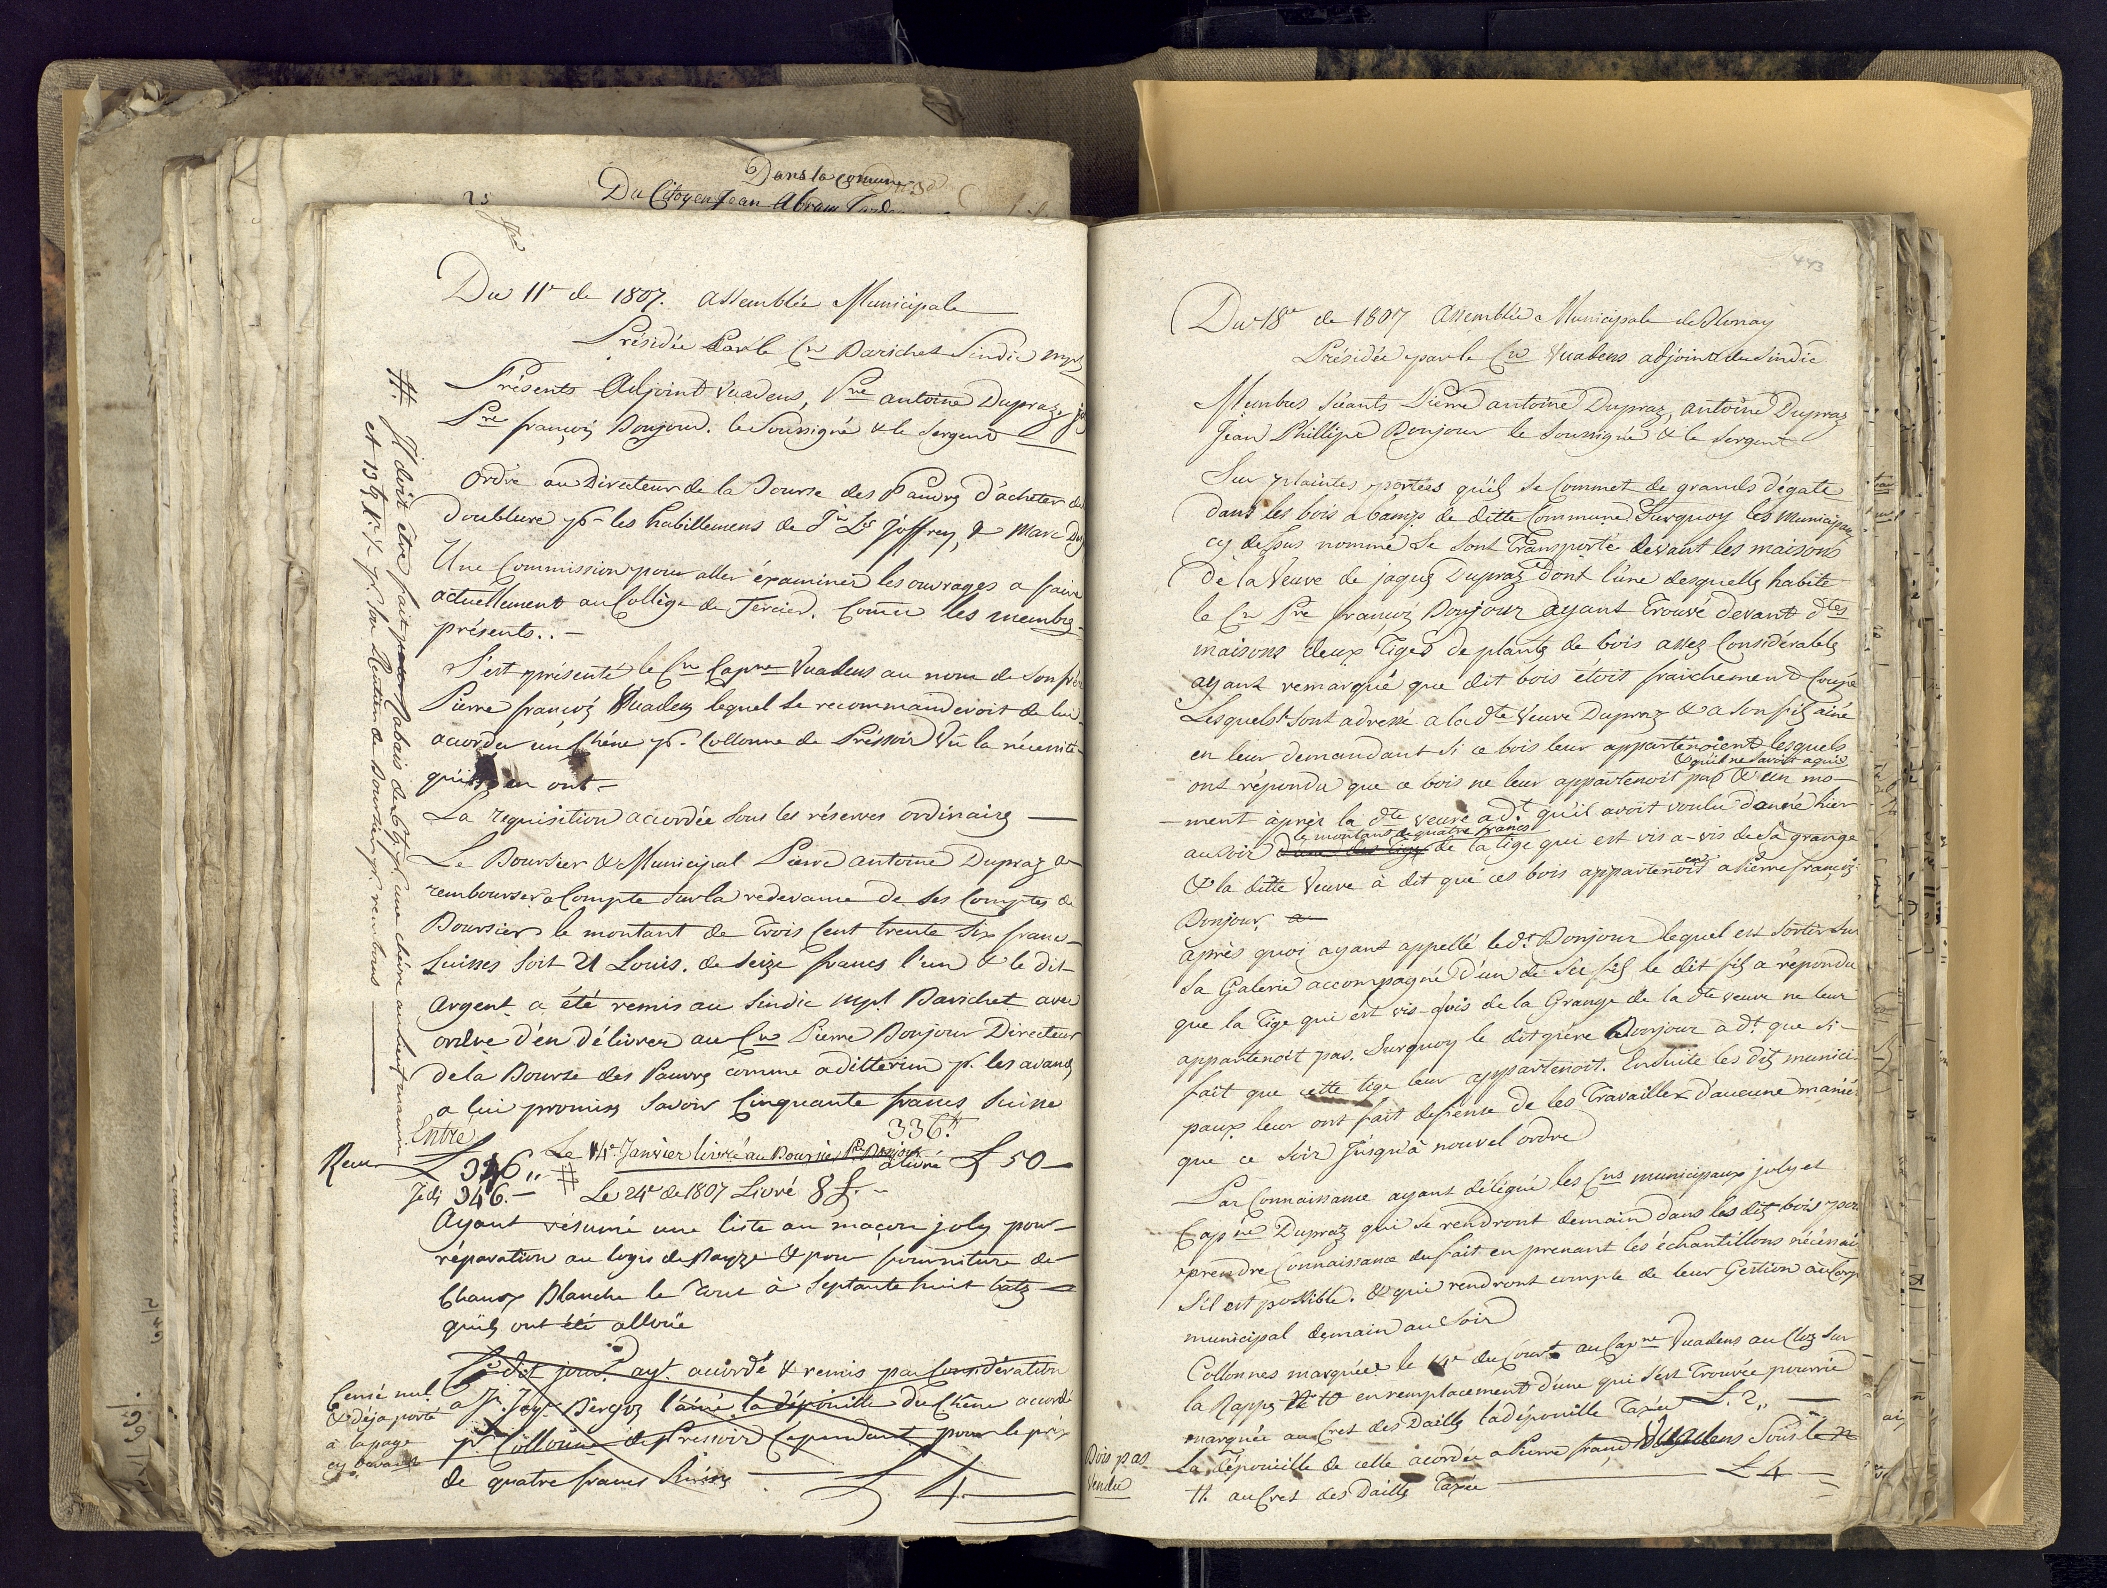 Dans la comune
Du Citoyen Jean Abram
25
Du 11e de 1807. Assemblée Municipale
Présidée Par le Cn Barichet Sindic mpl
Présents Adjoint Vuadens, Pre antoine Dupraz,
Pre françois Bonjour. le Soussigné & le Sergent
Ordre au Directeur de la Bourse des Pauvres d'acheter de
doublure pr les habillemens de Jn Ls Joffrey, & Marc
Une Commission pour aller éxaminer les ouvrages a faire
actuellement au Collège de Tercier. Comis les membres
présents..
S'est présenté le Cn Capne Vuadens au nom de son frère
Pierre françois Vuadens lequel se recommanderoit de lui
acorder un Chêne pr Collonne de Préssoir Vu la nécessité
qu'ils en ont
La requisition accordée sous les réserves ordinaires
Le Boursier & Municipal Pierre antoine Dupraz a
remboursé a Compte sur la redevance de ses Comptes de
Boursier le montant de trois Cent trente six francs
Suisses soit 21 Louis. de seize francs l'un & le dit
Argent a été remis au Sindic mpl. Barichet avec
ordre d'en délivrer au Cn Pierre Bonjour Directeur
de la Bourse des Pauvres comme aditterim pr les avances
a lui promises savoir Cinquante francs Suisse
Entré 336
Le 14e Janvier livré au Boursier Pre Bonjour
Reçu 336 a livré £ 50
Jedi 346. # Le 24e de 1807 Livré 8 £.
Ayant résumé une liste au maçon joly pour
réparation au logis de Bayze & pour fourniture de
Chaux Blanche le tout à Septante huit batz
qu'ils ont été allouée
Ce dit jour ayt. acordé & remis par Considération
a Jn Jaqs l'ainé la dépouille du Chêne acordé
pr Collonne de Pressoir Cependant pour le prix
de quatre francs Suisses £ 4
Censé nul
& déja porté
à la page
cy devant
# Il doit être fait rabais de 6 une chèvre
et 13 pr. son Routien de Boursier pr. rembours
443
Du 18e de 1807 Assemblée Municipale de Blonay
Présidée par le Cn Vuadens adjoint du Sindic
Membres Séants Pierre antoine Dupraz, antoine Dupraz
Jean Phillipe Bonjour le soussigné & le Sergent
Sur plaintes portées qu'il se Commet de grands dégats
dans les bois a bamps de ditte Commune. Surquoy les Municipaux
cy dessus nommé se sont transporté devant les maisons
de la Veuve de jaques Dupraz dont l'une desquelles habite
le Cn Pre françois Bonjour ayant trouvé devant dtes
maisons deux tiges de plantes de bois assez Considérables
ayant remarqué que dit bois étoit fraichement Coupé
Lesquels sont adressé a la dte Veuve Dupraz & a son fils ainé
en leur demandant si ce bois leur appartenoient lesquels
& qu'il ne savoit a qui
ont répondu que ce bois ne leur appartenoit pas & un mo-
ment après la dte veuve a dt. qu'il avoit voulu donné hier
le montant de quatre francs
au soir d'une des tiges de la tige qui est vis a vis de sa grange
& la ditte Veuve à dit que ces bois appartenoit a Pierre françois
Bonjour.
après quoi ayant appellé le dt. Bonjour lequel est sortir sur
sa Galerie accompagné d'un de ses fils le dit fils a répondu
que la tige qui est vis-a-vis de la Grange de la dte veuve ne leur
appartenoit pas. Surquoy le dit père Bonjour a dt. que si
fait que cette tige leur appartenoit. Ensuite les dits munici-
paux leur ont fait defense de les Travailler d'aucune manière
que ce soir Jusqu'à nouvel ordre
Par Connaissance ayant délégué les Cns municipaux joly et
Capne Dupraz qui se rendront demain dans les dits bois pour
prendre Connaissance du fait en prenant les échantillons nécéssaire
s'il est possible. & qui rendront compte de leur Gestion au Corps
municipal demain au soir
Collonnes marquées le 14e du Court au Capne Vuadens au Cluz sur
la Rapps 10 en remplacement d'une qui s'est Trouvée pourrie
marquée au Cret des Dailles la dépouille Taxée £. 2
La dépouille de celle acordée a Pierre franç Vuadens Sous le n
11. au Cret des Dailles Taxée £ 4
Bois pas
vendu